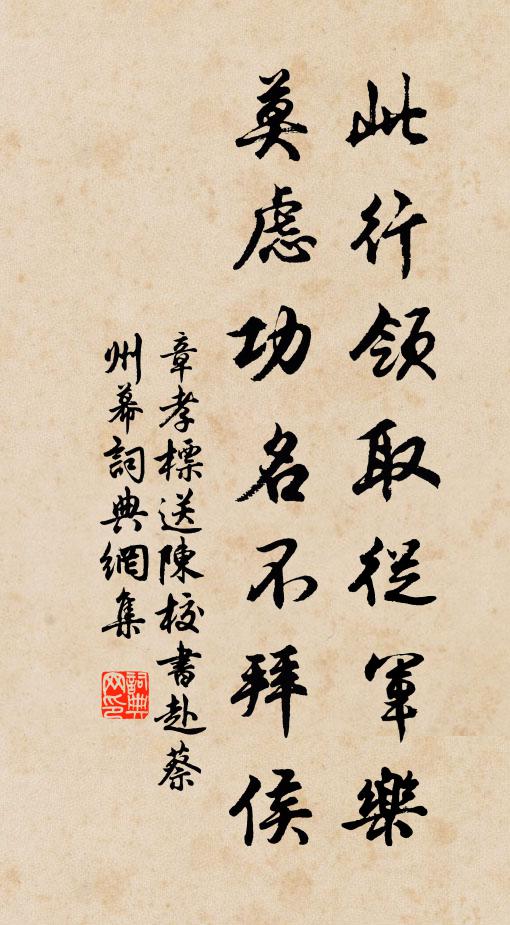 此行領取從軍樂
莫慮功名不拜侯
章孝標送陳校書赴蔡
州幕詞典網集
詞典
网印